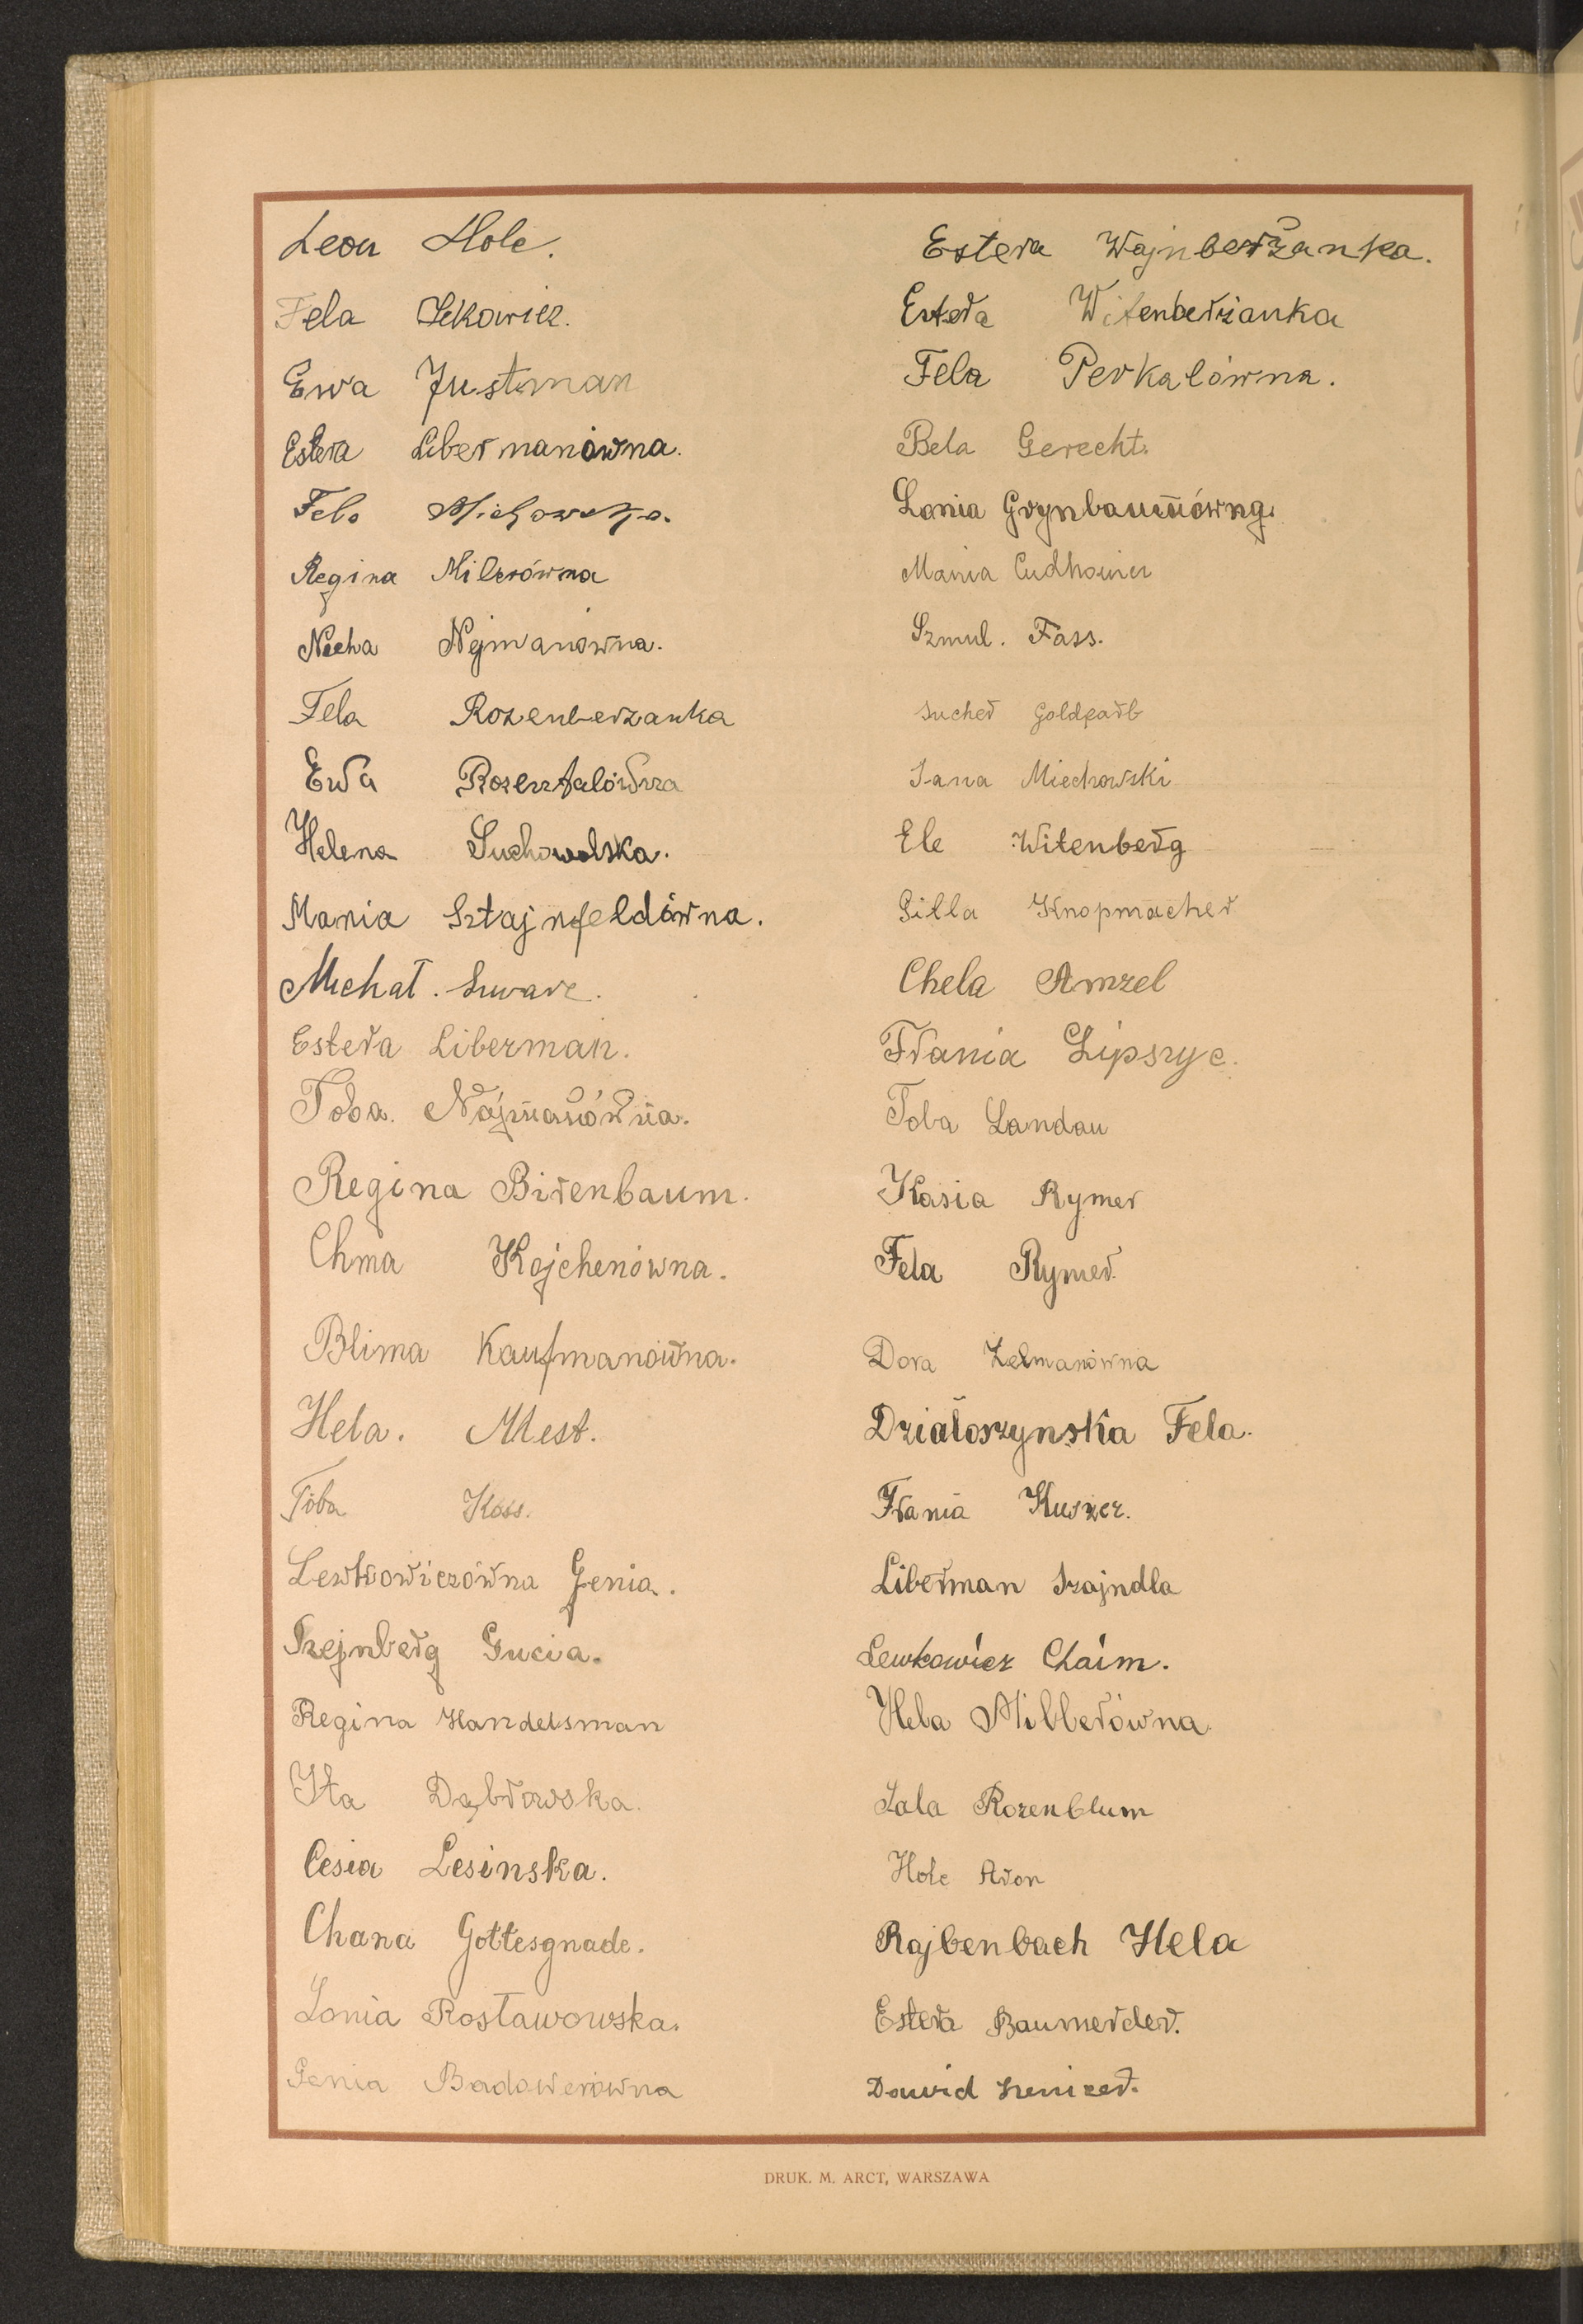 Leon Hole.
Fela Ickowicz.
Ewa Justman
Estera Libermanówna.
Fela Michowska.
Regina Milerówna
Necha Nejmanówna.
Fela Rozenberzanka
Ewa Rozentalówna
Helena Suchowolska.
Mania Sztajnfeldówna.
Michał. Szwarc.
Estera Liberman.
Toba. Najmanówna.
Regina Birenbaum.
Chma Kojchenówna.
Blima Kaufmanówna.
Hela. Mest.
Toba Koss.
Lewkowiczówna Genia.
Szejnberg Gucia.
Regina Handelsman
Ita Dąbrowska.
Cesia Lesinska.
Chana Gottesgnade.
Lonia Rosławowska.
Genia Badowerówna
Estera Wajnberżanka.
Estera Witenberżanka
Fela Perkalówna.
Bela Gerecht.
Lonia Grynbaumówna.
Mania Cudhowicz
Szmul. Fass.
Sucher Goldfarb
Jana Miechowski
Ele Witenberg
Gitla Knopmacher
Chela Amzel
Frania Lipszyc.
Toba Landau
Kasia Rymer
Fela Rymer.
Dora Zelmanówna
Działoszynska Fela.
Frania Kuszer.
Liberman Szajndla
Lewkowicz Chaim.
Hela Millerówna.
Sala Rozenblum
Hole Aron
Rajbenbach Hela
Estera Baumerder.
Dawid Sznicer.
DRUK. M. ARCT, WARSZAWA